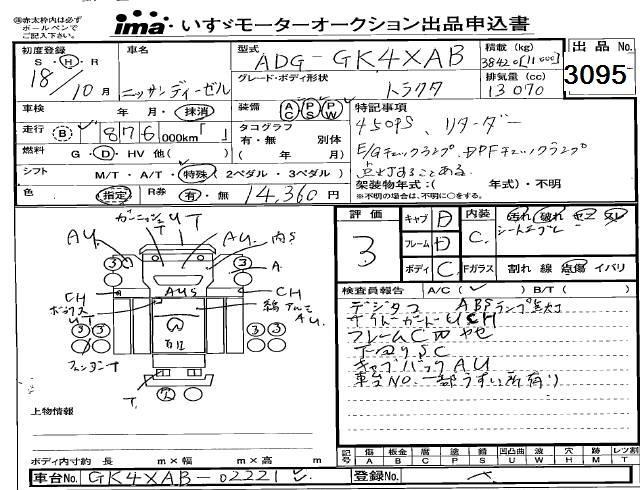 ㊟赤太枠内は必ず
ボールペンで
ご記入下さい。
ima いすゞモーターオークション出品申込書
初度登録
S・H・R
18/10月
車名
ニッサンディーゼル
型式
ADG-GK4XAB
グレード・ボディ形状
トラクタ
積載(kg)
38420[11500]
排気量(cc)
13070
出品No.
3095
車検 年 月・抹消
装備 AC PS PW
特記事項
450PS、リターダー
走行 B 876,000km「 」
タコグラフ
有・無 別体
( 年 月)
E/Gチェックランプ、DPFチェックランプ
燃料 G・D・HV 他( )
点灯することある。
シフト M/T・A/T・特殊(2ペダル・3ペダル)
架装物年式:( 年式)・不明
※不明の場合は、不明に○をする。
色 指定 R券 有・無 14,360円
評価
3
キャブ D
フレーム D
ボディ C
内装 C
汚れ 破れ
シート
Fガラス 割れ 線 点傷 イバリ
検査員報告 A/C( ✓ ) B/T( )
デジタコ ABSランプ点灯
サイドガードUCH
フレームC
下回りSC
キャブバックAU
車台NO.一部うすい所有り
ガーニッシュUT
AU
AU
内S
3
3
A
CH
AUS
CH
UT
AU
3
3
T
上物情報
ボディ内寸約 長 m×幅 m×高 m
記号 傷A 板金B 腐C 塗P 錆S 凹凸曲U 波W 穴H 跡M レツ割T
車台No. GK4XAB-02221
登録No.